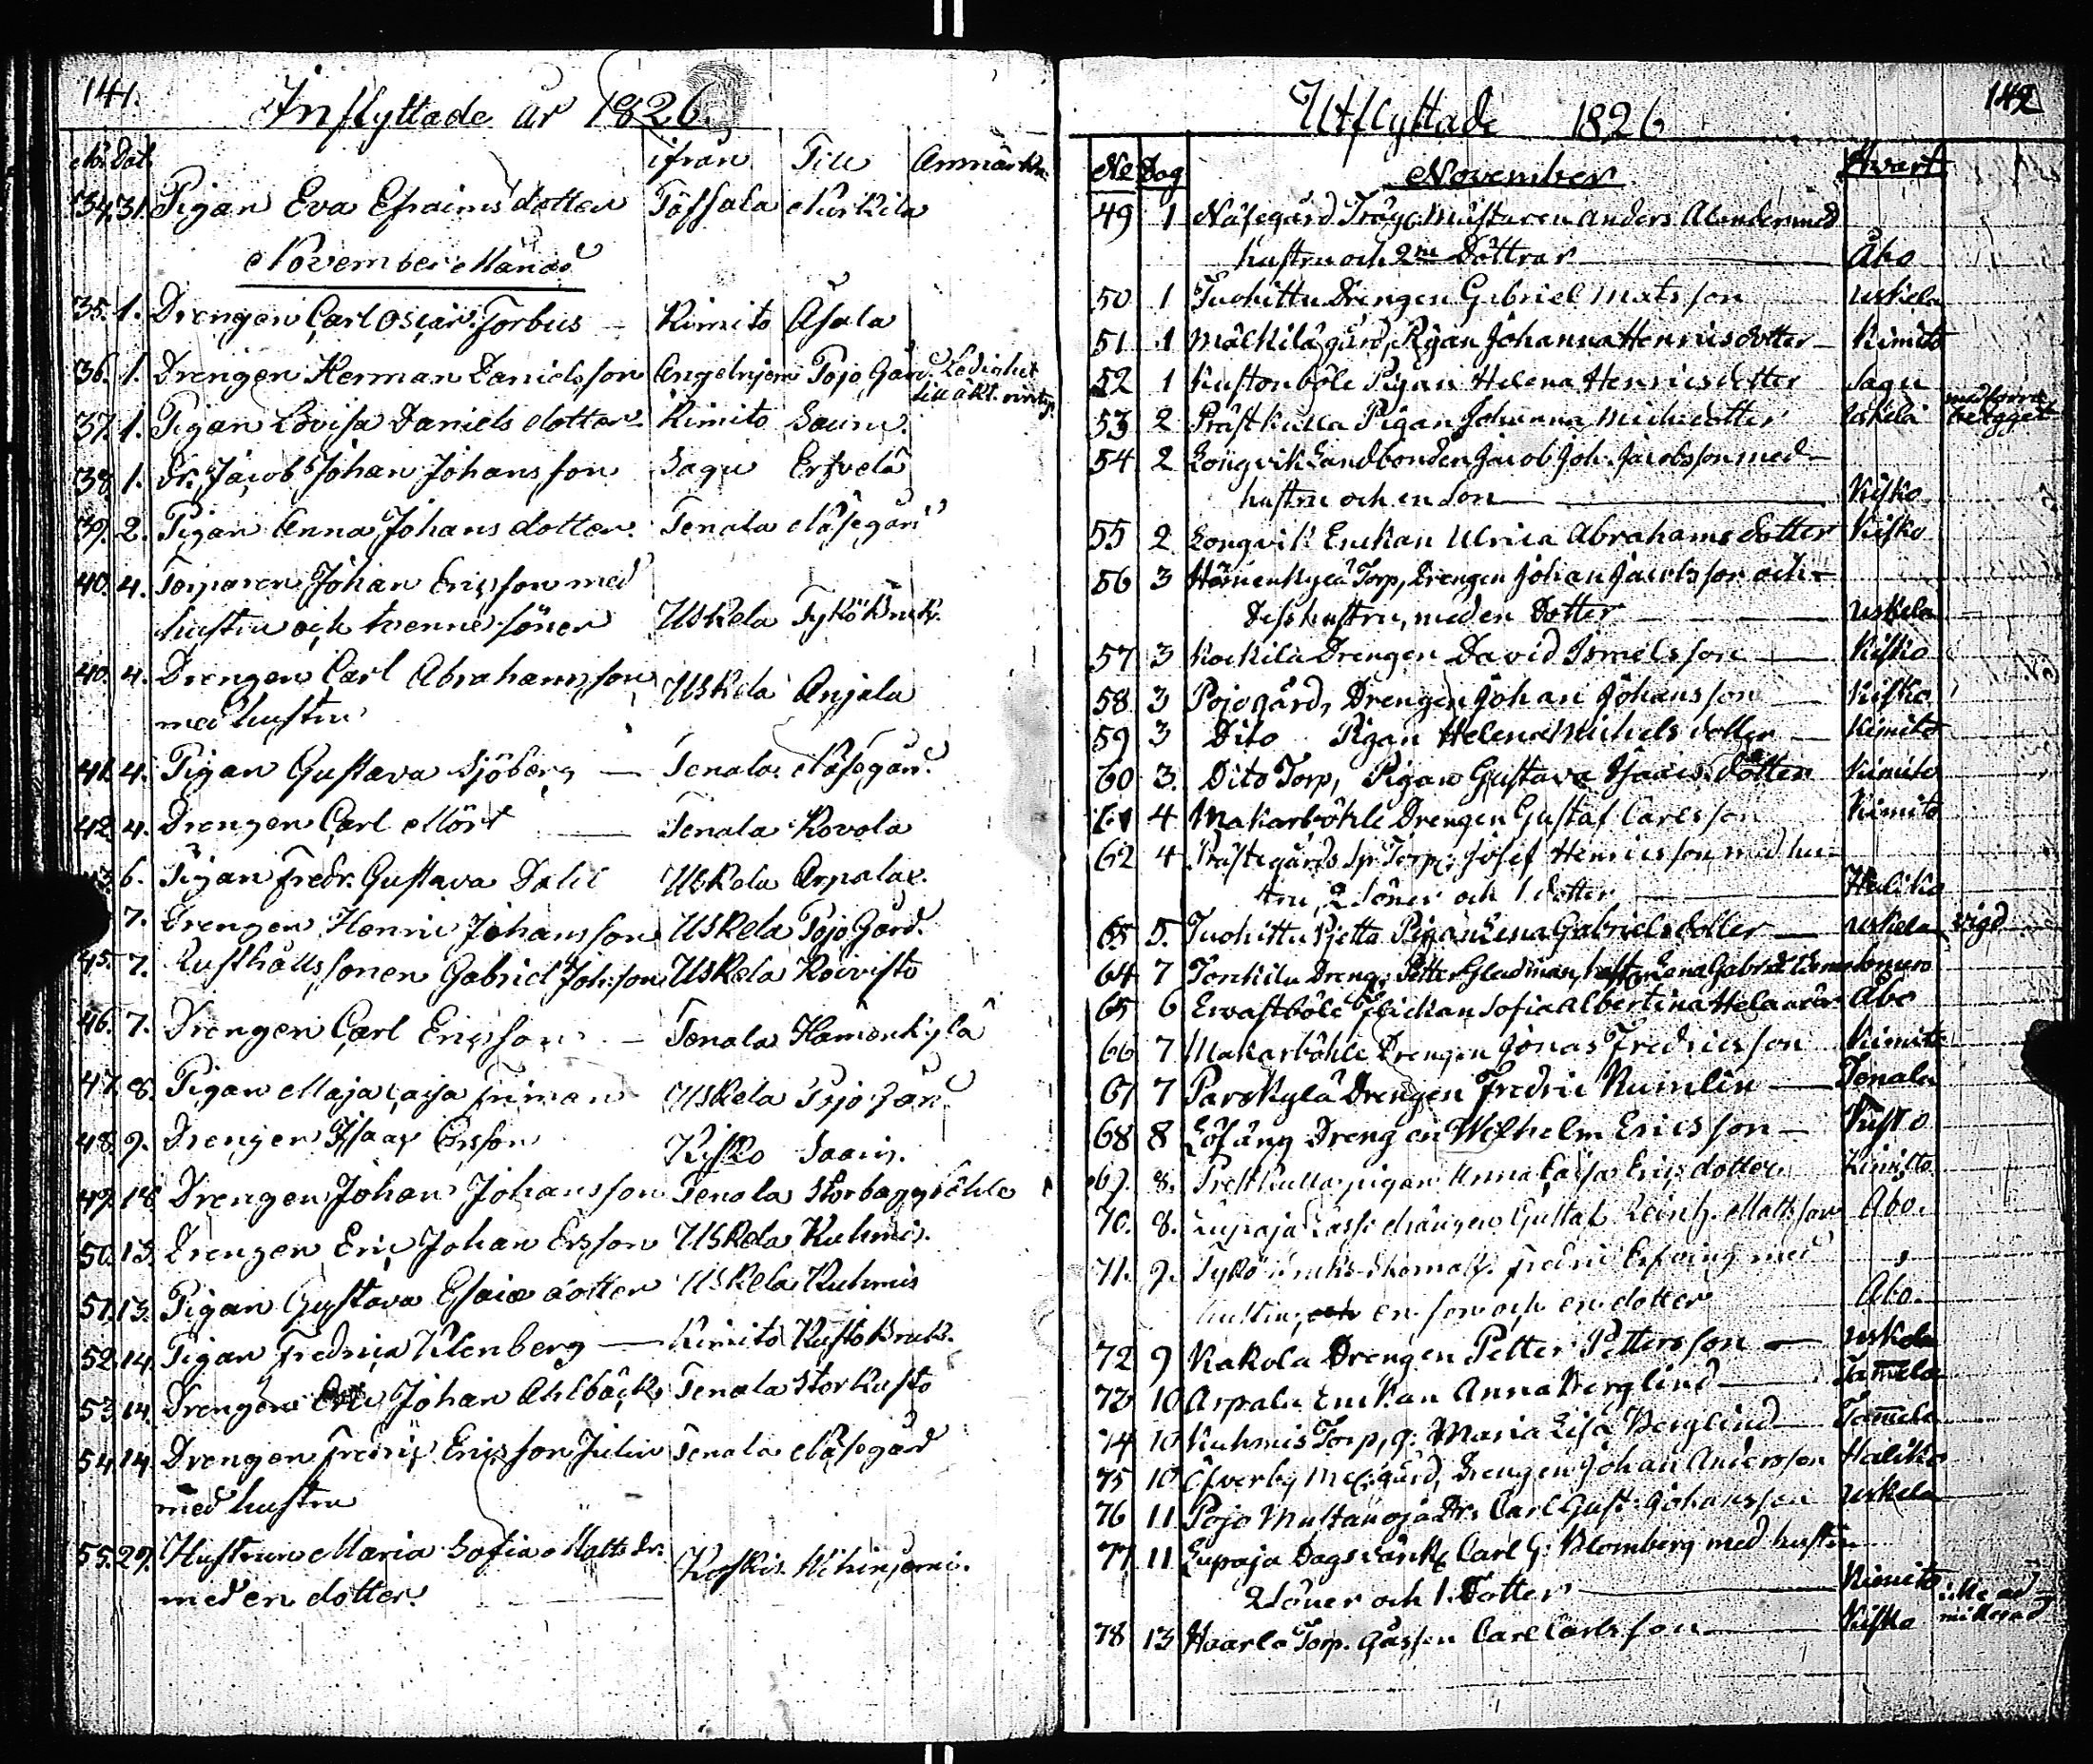 141.
Inflyttade år 1826.
No. Dat. ifrån Till Anmärkn.
34. 31. Pigan Eva Efraims dotter Töfsala Nurkila
November Månad
35. 1. Drengen Carl Oscar Forbus — Kimito Åsala
36. 1. Drengen Herman Danielsson Angelnjemi Pojo Gård. Ledighet
till äkt.
37. 1. Pigan Lovisa Daniels dotter Kimito Sauru.
38. 1. Dr. Jacob Johan Johansson Sagu Ersvelä
39. 2. Pigan Anna Johans dotter. Tenala Näsegård
40. 4. Torparen Johan Ericsson med
hustru och tvenne söner Uskela Tykö Bruk.
40. 4. Drengen Carl Abrahamsson Uskela Anjala
med hustru
41. 4. Pigan Gustava Sjöberg — Tenala Näsegård.
42. 4. Drengen Carl Mört — Tenala Kovola
6. Pigan Fredr. Gustava Dahl Uskela Arpalax.
7. Drengen Henric Johansson Uskela Pojo Gård.
45. 7. Rusthålls sonen Gabriel Joh:son Uskela Koivisto
46. 7. Drengen Carl Ericsson — Tenala Hämenkylä
47. 8. Pigan Maja Caisa Friman Uskela Pojo gård
48. 9. Drengen Isaac Ersson Kisko Saaris.
49. 10 Drengen Johan Johansson Tenala Storbaggböhle
50. 13. Drengen Eric Johan Ersson Uskela Kuhmis.
51. 13. Pigan Gustava Esaiæ dotter Uskela Kuhmis
52. 14. Pigan Fredrica Vilenberg — Kimito Kusto Bruk.
53. 14. Drengen Eric Johan Ahlbäck Tenala Stor Kusto
54. 14. Drengen Fredric Ericsson Julin Tenala Näsegård
med hustru
55. 29. Hustrun Maria Sofia Matts dr.
med en dotter. Koskis
142
Utflyttade 1826
No Dag November Hvart
49 1 Näsegård Träg:mästaren Anders Alander med
hustru och 2ne Döttrar — Åbo
50 1 Tuohittu Drengen Gabriel Matsson Uskela
51 1 Mälkilä gård, Pigan Johanna Henricsdotter — Kimito
52 1 Kustonböle Pigan Helena Henricsdotter Sagu
53 2 Prästkulla Pigan Johanna Mickelsdotter Uskela
54 2 Långvik Landbonden Jacob Joh. Jacobsson med
hustru och en Son — Kisko
55 2 Longvik Enckan Ulrica Abrahams dotter Kisko
56 3 Hämenkylä Torp, Drengen Johan Jacobsson och
Dess hustru, med en Dotter — Uskela
57 3 Kockila Drengen David Ismelsson — Kisko
58 3 Pojogård, Drengen Johan Johansson — Kisko
59 3 Dito Pigan Helena Michels dotter — Kimito
60 3. Dito Torp, Pigan Gustava Isaacs dotter Kimito
61 4 Makarböhle Drengen Gustaf Carlsson Kimito
62 4 Prästegårds Sp: Torp: Josef Henricsson med hu-
stru, 2 Söner och 1 dotter — Haliko
63 5. Tuohittu Pigan Lena Gabriels dotter — Uskela vigd
64 7 Torckila Dreng: Petter Gladman, hustru Lena Gabriels Bromarf
65 6 Ervastböle Flickan Sofia Albertina Helander Åbo
66 7 Makarböhle Drengen Jonas Fredricsson Kimito
67 7 Parskylä Drengen Fredric Numelin — Tenala
68 8 Löfäng Drengen Wilhelm Ericsson — Kisko
69. 8. Prestkulla pigan Anna Caisa Erics dotter Kimito
70. 8. Lupaja Gustaf Reinh. Mattsson Åbo.
71. 9. Tykö Bruks Fredric med
hustru, och en son och en dotter Åbo.
72 9 Kakola Drengen Petter Pettersson — Uskela
73 10 Arpala Enckan Anna Berglind — Tammela
74 10 Kuhmis Torp, q: Maria Lisa Berglind — Tammela
75 10 Öfverby gård, Drengen Johan Andersson Haliko
76 11 Pojo Mustanoja Dr. Carl Gust: Johansson Uskela
77. 11 Lupaja Dagsvärck Carl G: Blomberg med hustru
2 Söner och 1 Dotter — Kimito
78 13 Haarla Torp. Gossen Carl Carlsson — Kisko